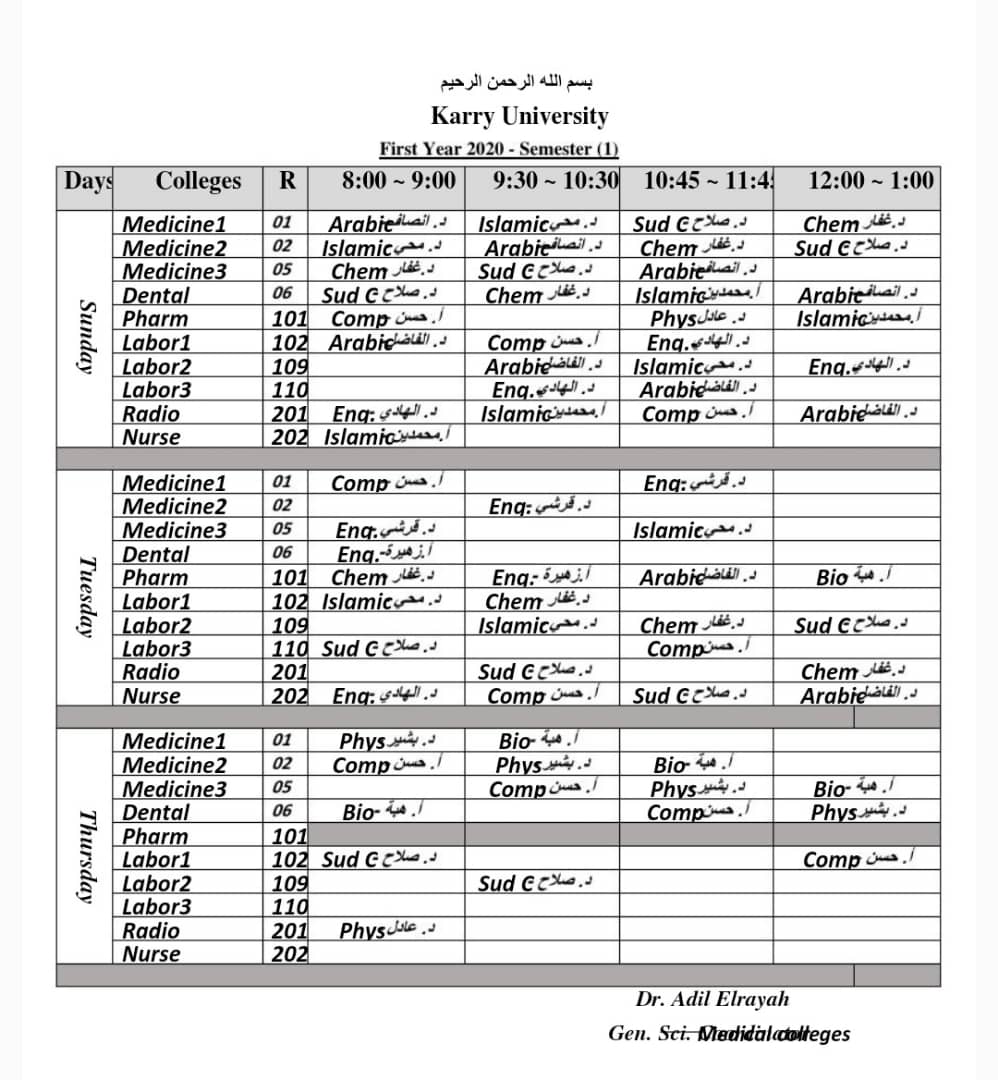 بسم الله الرحمن الرحيم
Karry University
First Year 2020 - Semester (1)
Days Colleges R 8:00 ~ 9:00 9:30 ~ 10:30 10:45 ~ 11:4 12:00 ~ 1:00
Sunday
Medicine1 01 Arabic د. انصاف Islamic د. محي Sud C د. صلاح Chem د. غفار
Medicine2 02 Islamic د. محي Arabic د. انصاف Chem د. غفار Sud C د. صلاح
Medicine3 05 Chem د. غفار Sud C د. صلاح Arabic د. انصاف
Dental 06 Sud C د. صلاح Chem د. غفار Islamic أ. محمدين Arabic د. انصاف
Pharm 101 Comp أ. حسن Phys د. عادل Islamic أ. محمدين
Labor1 102 Arabic د. الفاضل Comp أ. حسن Eng. د. الهادي
Labor2 109 Arabic د. الفاضل Islamic د. محي Eng. د. الهادي
Labor3 110 Eng. د. الهادي Arabic د. الفاضل
Radio 201 Eng: د. الهادي Islamic أ. محمدين Comp أ. حسن Arabic د. الفاضل
Nurse 202 Islamic أ. محمدين
Tuesday
Medicine1 01 Comp أ. حسن Eng: د. قرشي
Medicine2 02 Eng: د. قرشي
Medicine3 05 Eng. د. قرشي Islamic د. محي
Dental 06 Eng.- أ. زهيرة
Pharm 101 Chem د. غفار Eng:- أ. زهيرة Arabic د. الفاضل Bio أ. هبة
Labor1 102 Islamic د. محي Chem د. غفار
Labor2 109 Islamic د. محي Chem د. غفار Sud C د. صلاح
Labor3 110 Sud C د. صلاح Comp أ. حسن
Radio 201 Sud C د. صلاح Chem د. غفار
Nurse 202 Eng: د. الهادي Comp أ. حسن Sud C د. صلاح Arabic د. الفاضل
Thursday
Medicine1 01 Phys د. بشير Bio- أ. هبة
Medicine2 02 Comp أ. حسن Phys د. بشير Bio- أ. هبة
Medicine3 05 Comp أ. حسن Phys د. بشير Bio- أ. هبة
Dental 06 Bio- أ. هبة Comp أ. حسن Phys د. بشير
Pharm 101
Labor1 102 Sud C د. صلاح Comp أ. حسن
Labor2 109 Sud C د. صلاح
Labor3 110
Radio 201 Phys د. عادل
Nurse 202
Dr. Adil Elrayah
Gen. Sci. Medical colleges